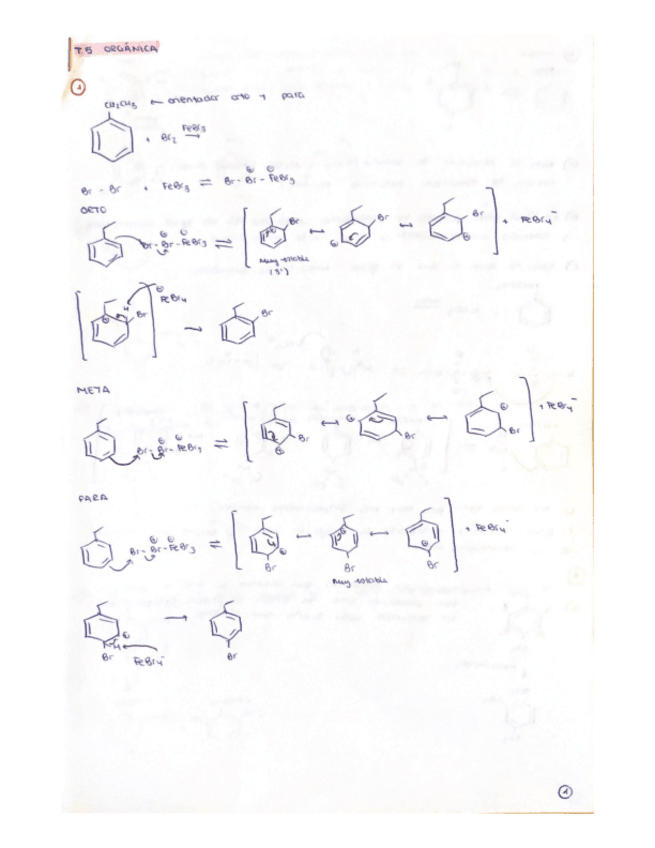 T.5 ORGÁNICA
1
CH2CH3 ← orientador orto y para
+ Br2 FeBr3 →
Br - Br + FeBr3 ⇌ Br - Br - FeBr3
ORTO
Br - Br - FeBr3 ⇌ Br ↔ Br ↔ Br + FeBr4⁻
Muy estable
(3º)
H Br FeBr4 → Br
META
Br - Br - FeBr3 ⇌ Br ↔ Br ↔ Br + FeBr4⁻
PARA
Br - Br - FeBr3 ⇌ Br ↔ Br ↔ Br + FeBr4⁻
Muy estable
H Br FeBr4⁻ → Br
1